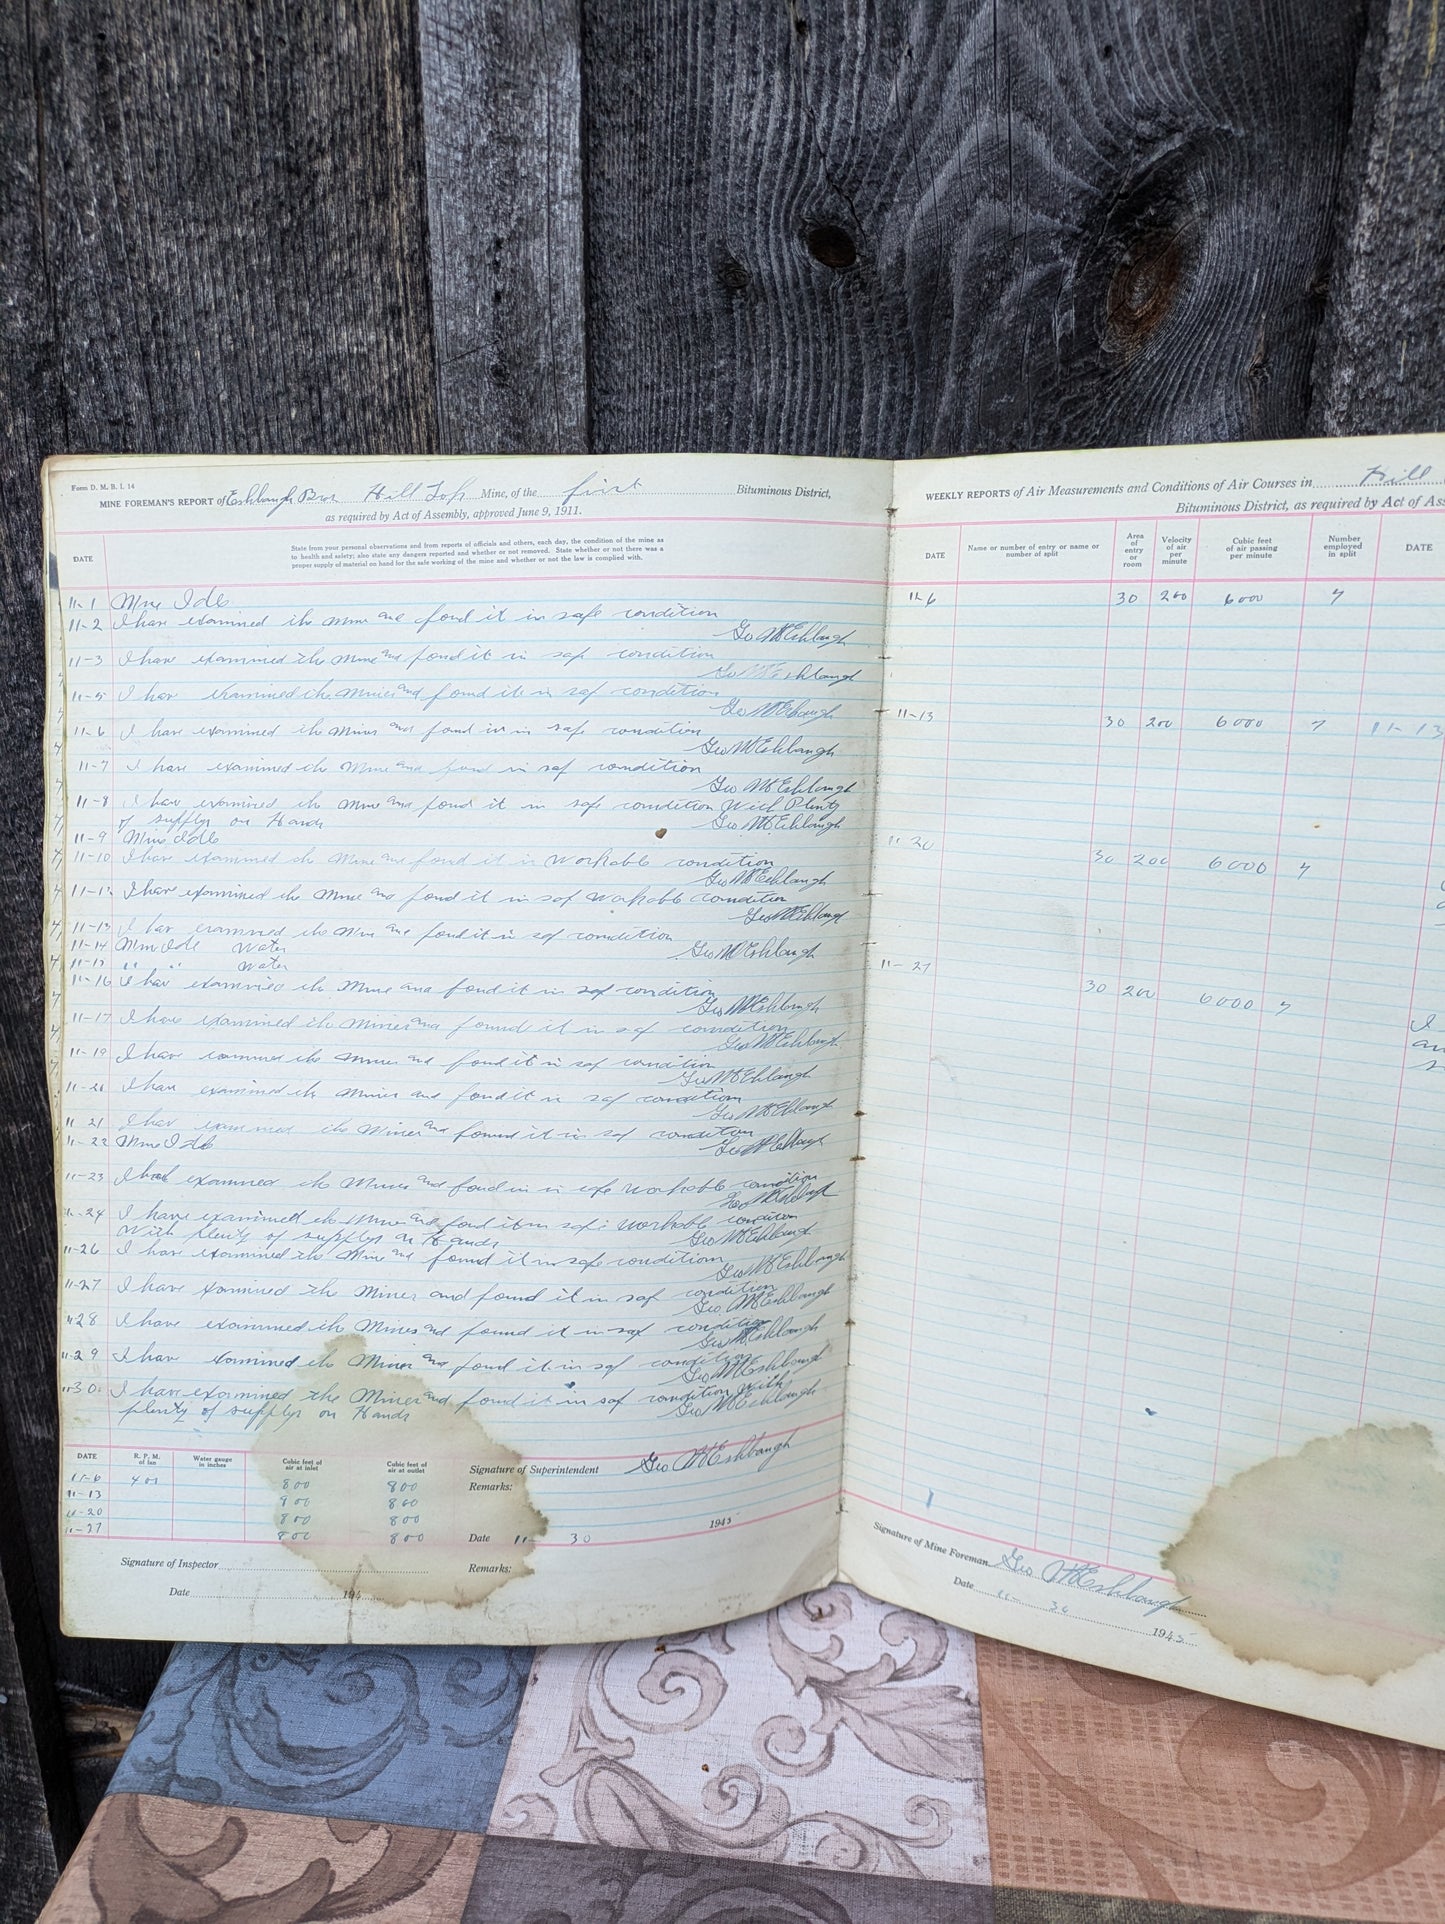 Form D. M. B. I. 14
MINE FOREMAN'S REPORT of Eshbaugh Bros Hill Top Mine, of the first Bituminous District,
as required by Act of Assembly, approved June 9, 1911.
DATE
State from your personal observations and from reports of officials and others, each day, the condition of the mine as
to health and safety; also state any dangers reported and whether or not removed. State whether or not there was a
proper supply of material on hand for the safe working of the mine and whether or not the law is complied with.
11-1 Mine Idle
11-2 I have examined the mine and fond it in safe condition
Geo W Eshbaugh
11-3 I have examined the Mine and fond it in saf condition
Geo W Eshbaugh
11-5 I hav examined the Mines and fond it in saf condition
Geo W Eshbaugh
11-6 I have examined the Mines and fond in in safe condition
Geo W Eshbaugh
11-7 I have examined the Mine and fond in saf condition
Geo W Eshbaugh
11-8 I have examined the mine and fond it in safe condition With Plenty
of supplys on Hands Geo W Eshbaugh
11-9 Mine Idle
11-10 I have examined the Mine and fond it in workable condition
Geo W Eshbaugh
11-12 I have examined the Mine and fond it in saf workable condition
Geo W Eshbaugh
11-13 I hav examined the Mine and fond it in saf condition
11-14 Mine Idle Water Geo W Eshbaugh
" " Water
11-16 I hav examined the Mine and fond it in saf condition
Geo W Eshbaugh
11-17 I have examined the Mines and found it in saf condition
Geo W Eshbaugh
11-19 I have examined the Mines and fond it in saf condition
Geo W Eshbaugh
I have examined the Mines and fond it in saf condition
Geo W Eshbaugh
11-21 I hav examined the Mines and found it in saf condition
11-22 Mine Idle Geo W Eshbaugh
11-23 I have examined the Mines and fond in in safe workable condition
Geo W Eshbaugh
11-24 I have examined the Mine and fond it in safe workable condition
With plenty of supplys on Hands Geo W Eshbaugh
11-26 I have examined the Mine and found it in safe condition
Geo W Eshbaugh
11-27 I have examined the Mines and found it in saf condition
Geo W Eshbaugh
11-28 I have examined the Mines and found it in saf condition
Geo W Eshbaugh
11-29 I have examined the Mines and found it in saf condition
Geo W Eshbaugh
11-30 I have examined the Mines and found it in saf condition with
plenty of supplys on Hands Geo W Eshbaugh
DATE R. P. M. of fan Water gauge in inches Cubic feet of air at inlet Cubic feet of air at outlet
11-6 400 800 800
11-13 800 800
11-20 800 800
11-27 800 800
Signature of Superintendent Geo W Eshbaugh
Remarks:
Date 11- 30 1945
Signature of Inspector
Remarks:
Date 194
WEEKLY REPORTS of Air Measurements and Conditions of Air Courses in Hill
Bituminous District, as required by Act of
DATE Name or number of entry or name or number of split Area of entry or room Velocity of air per minute Cubic feet of air passing per minute Number employed in split DATE
11-6 30 200 6000 7
11-13 30 200 6000 7 11-13
11-20 30 200 6000 7
11-27
30 200 6000 7
I
Signature of Mine Foreman Geo W Eshbaugh
Date 11- 30 1945